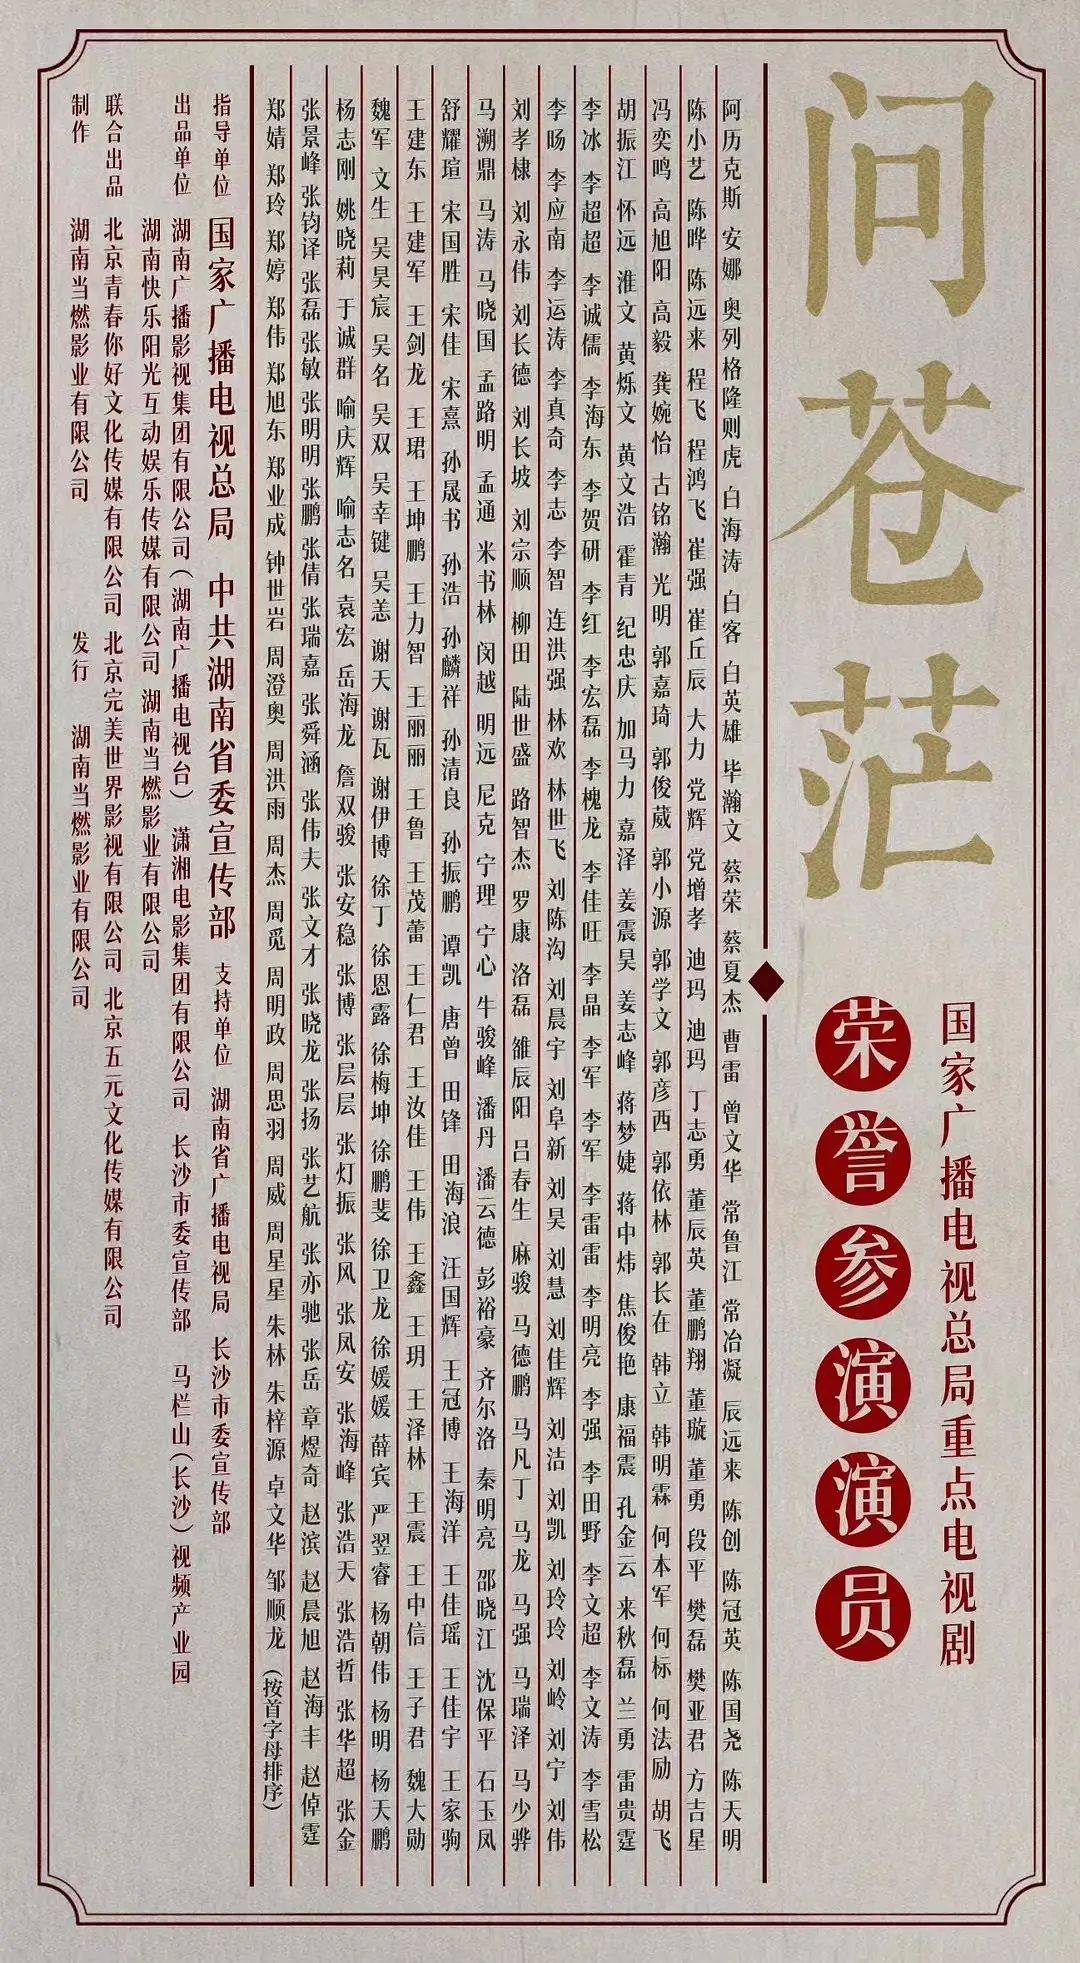 问苍茫
国家广播电视总局重点电视剧
荣誉参演演员
阿历克斯 安娜 奥列格隆则虎 白海涛 白客 白英雄 毕瀚文 蔡荣 蔡夏杰 曹雷 曾文华 常鲁江 常冶凝 辰远来 陈创 陈冠英 陈国尧 陈天明
陈小艺 陈晔 陈远来 程飞 程鸿飞 崔强 崔丘辰 大力 党辉 党增孝 迪玛 迪玛 丁志勇 董辰英 董鹏翔 董璇 董勇 段平 樊磊 樊亚君 方吉星
冯奕鸣 高旭阳 高毅 龚婉怡 古铭瀚 光明 郭嘉琦 郭俊葳 郭小源 郭学文 郭彦西 郭依林 郭长在 韩立 韩明霖 何本军 何标 何法励 胡飞
胡振江 怀远 淮文 黄烁文 黄文浩 霍青 纪忠庆 加马力 嘉泽 姜震昊 姜志峰 蒋梦婕 蒋中炜 焦俊艳 康福震 孔金云 来秋磊 兰勇 雷贵霆
李冰 李超超 李诚儒 李海东 李贺研 李红 李宏磊 李槐龙 李佳旺 李晶 李军 李军 李雷雷 李明亮 李强 李田野 李文超 李文涛 李雪松
李旸 李应南 李运涛 李真奇 李志 李智 连洪强 林欢 林世飞 刘陈沟 刘晨宇 刘阜新 刘昊 刘慧 刘佳辉 刘洁 刘凯 刘玲玲 刘岭 刘宁 刘伟
刘孝棣 刘永伟 刘长德 刘长坡 刘宗顺 柳田 陆世盛 路智杰 罗康 洛磊 雒辰阳 吕春生 麻骏 马德鹏 马凡丁 马龙 马强 马瑞泽 马少骅
马溯鼎 马涛 马晓国 孟路明 孟通 米书林 闵越 明远 尼克 宁理 宁心 牛骏峰 潘丹 潘云德 彭裕豪 齐尔洛 秦明亮 邵晓江 沈保平 石玉凤
舒耀瑄 宋国胜 宋佳 宋熹 孙晟书 孙浩 孙麟祥 孙清良 孙振鹏 谭凯 唐曾 田锋 田海浪 汪国辉 王冠博 王海洋 王佳瑶 王佳宇 王家驹
王建东 王建军 王剑龙 王珺 王坤鹏 王力智 王丽丽 王鲁 王茂蕾 王仁君 王汝佳 王伟 王鑫 王玥 王泽林 王震 王中信 王子君 魏大勋
魏军 文生 吴昊宸 吴名 吴双 吴幸键 吴恙 谢天 谢瓦 谢伊博 徐丁 徐恩露 徐梅坤 徐鹏斐 徐卫龙 徐媛媛 薛宾 严翌睿 杨朝伟 杨明 杨天鹏
杨志刚 姚晓莉 于诚群 喻庆辉 喻志名 袁宏 岳海龙 詹双骏 张安稳 张博 张层层 张灯振 张风 张凤安 张海峰 张浩天 张浩哲 张华超 张金
张景峰 张钧译 张磊 张敏 张明明 张鹏 张倩 张瑞嘉 张舜涵 张伟夫 张文才 张晓龙 张扬 张艺航 张亦驰 张岳 章煜奇 赵滨 赵晨旭 赵海丰 赵倬霆
郑婧 郑玲 郑婷 郑伟 郑旭东 郑业成 钟世岩 周澄奥 周洪雨 周杰 周觅 周明政 周思羽 周威 周星星 朱林 朱梓源 卓文华 邹顺龙 (按首字母排序)
指导单位 国家广播电视总局 中共湖南省委宣传部 支持单位 湖南省广播电视局 长沙市委宣传部
出品单位 湖南广播影视集团有限公司(湖南广播电视台) 潇湘电影集团有限公司 长沙市委宣传部 马栏山(长沙)视频产业园
湖南快乐阳光互动娱乐传媒有限公司 湖南当燃影业有限公司
联合出品 北京青春你好文化传媒有限公司 北京完美世界影视有限公司 北京五元文化传媒有限公司
制作 湖南当燃影业有限公司 发行 湖南当燃影业有限公司